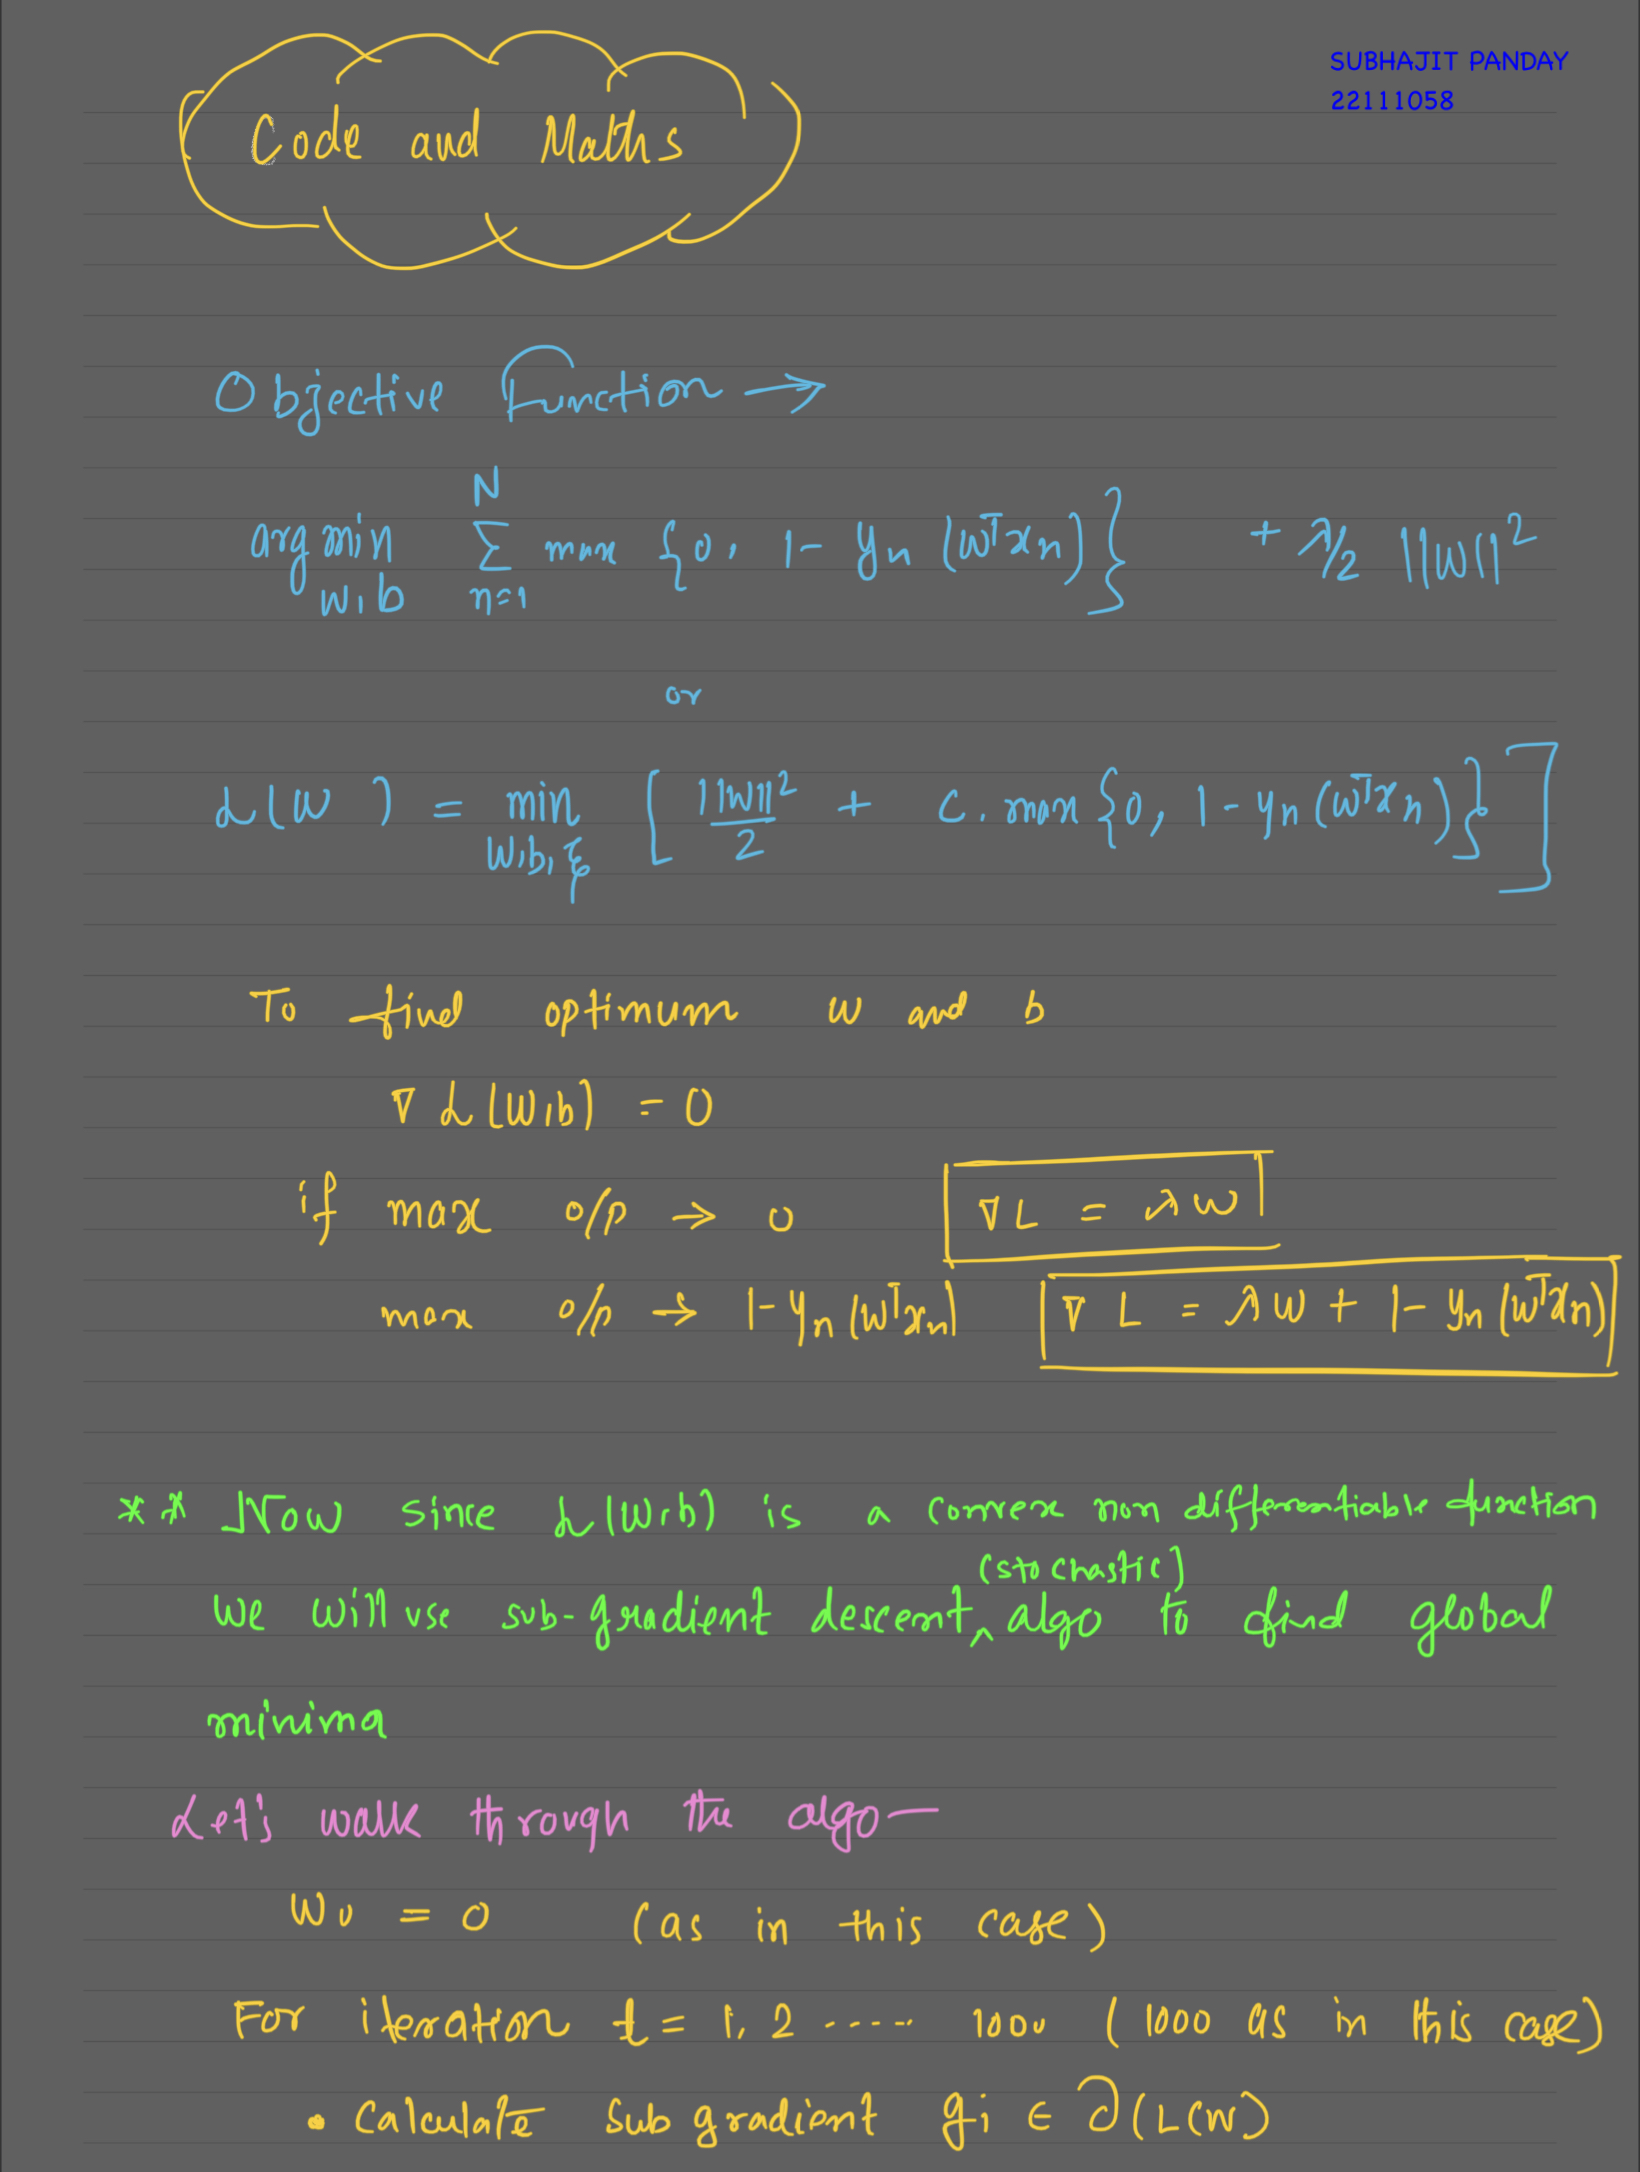 SUBHAJIT PANDAY
22111058
Code and Maths
Objective Function →
arg min_{w,b} Σ_{n=1}^{N} max {0, 1 - yn (wᵀxn)} + λ/2 ||w||²
or
L(w) = min_{w,b,ξ} [ ||w||²/2 + C. max {0, 1 - yn (wᵀxn)} ]
To find optimum w and b
∇ L(w,b) = 0
if max o/p → 0 ∇L = λw
max o/p → 1 - yn (wᵀxn) ∇ L = λw + 1 - yn (wᵀxn)
** Now since L(w,b) is a convex non differentiable function
(stochastic)
we will use sub-gradient descent ^ algo to find global
minima
Let's walk through the algo —
w0 = 0 (as in this case)
For iteration t = 1, 2 ..... 1000 (1000 as in this case)
• Calculate sub gradient gi ∈ ∂(L(w)